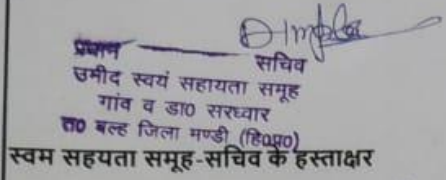 Dimple
प्रधान सचिव
उमीद स्वयं सहायता समूह
गांव व डा० सरध्वार
त० बल्ह जिला मण्डी (हि०प्र०)
स्वम सहयता समूह-सचिव के हस्ताक्षर